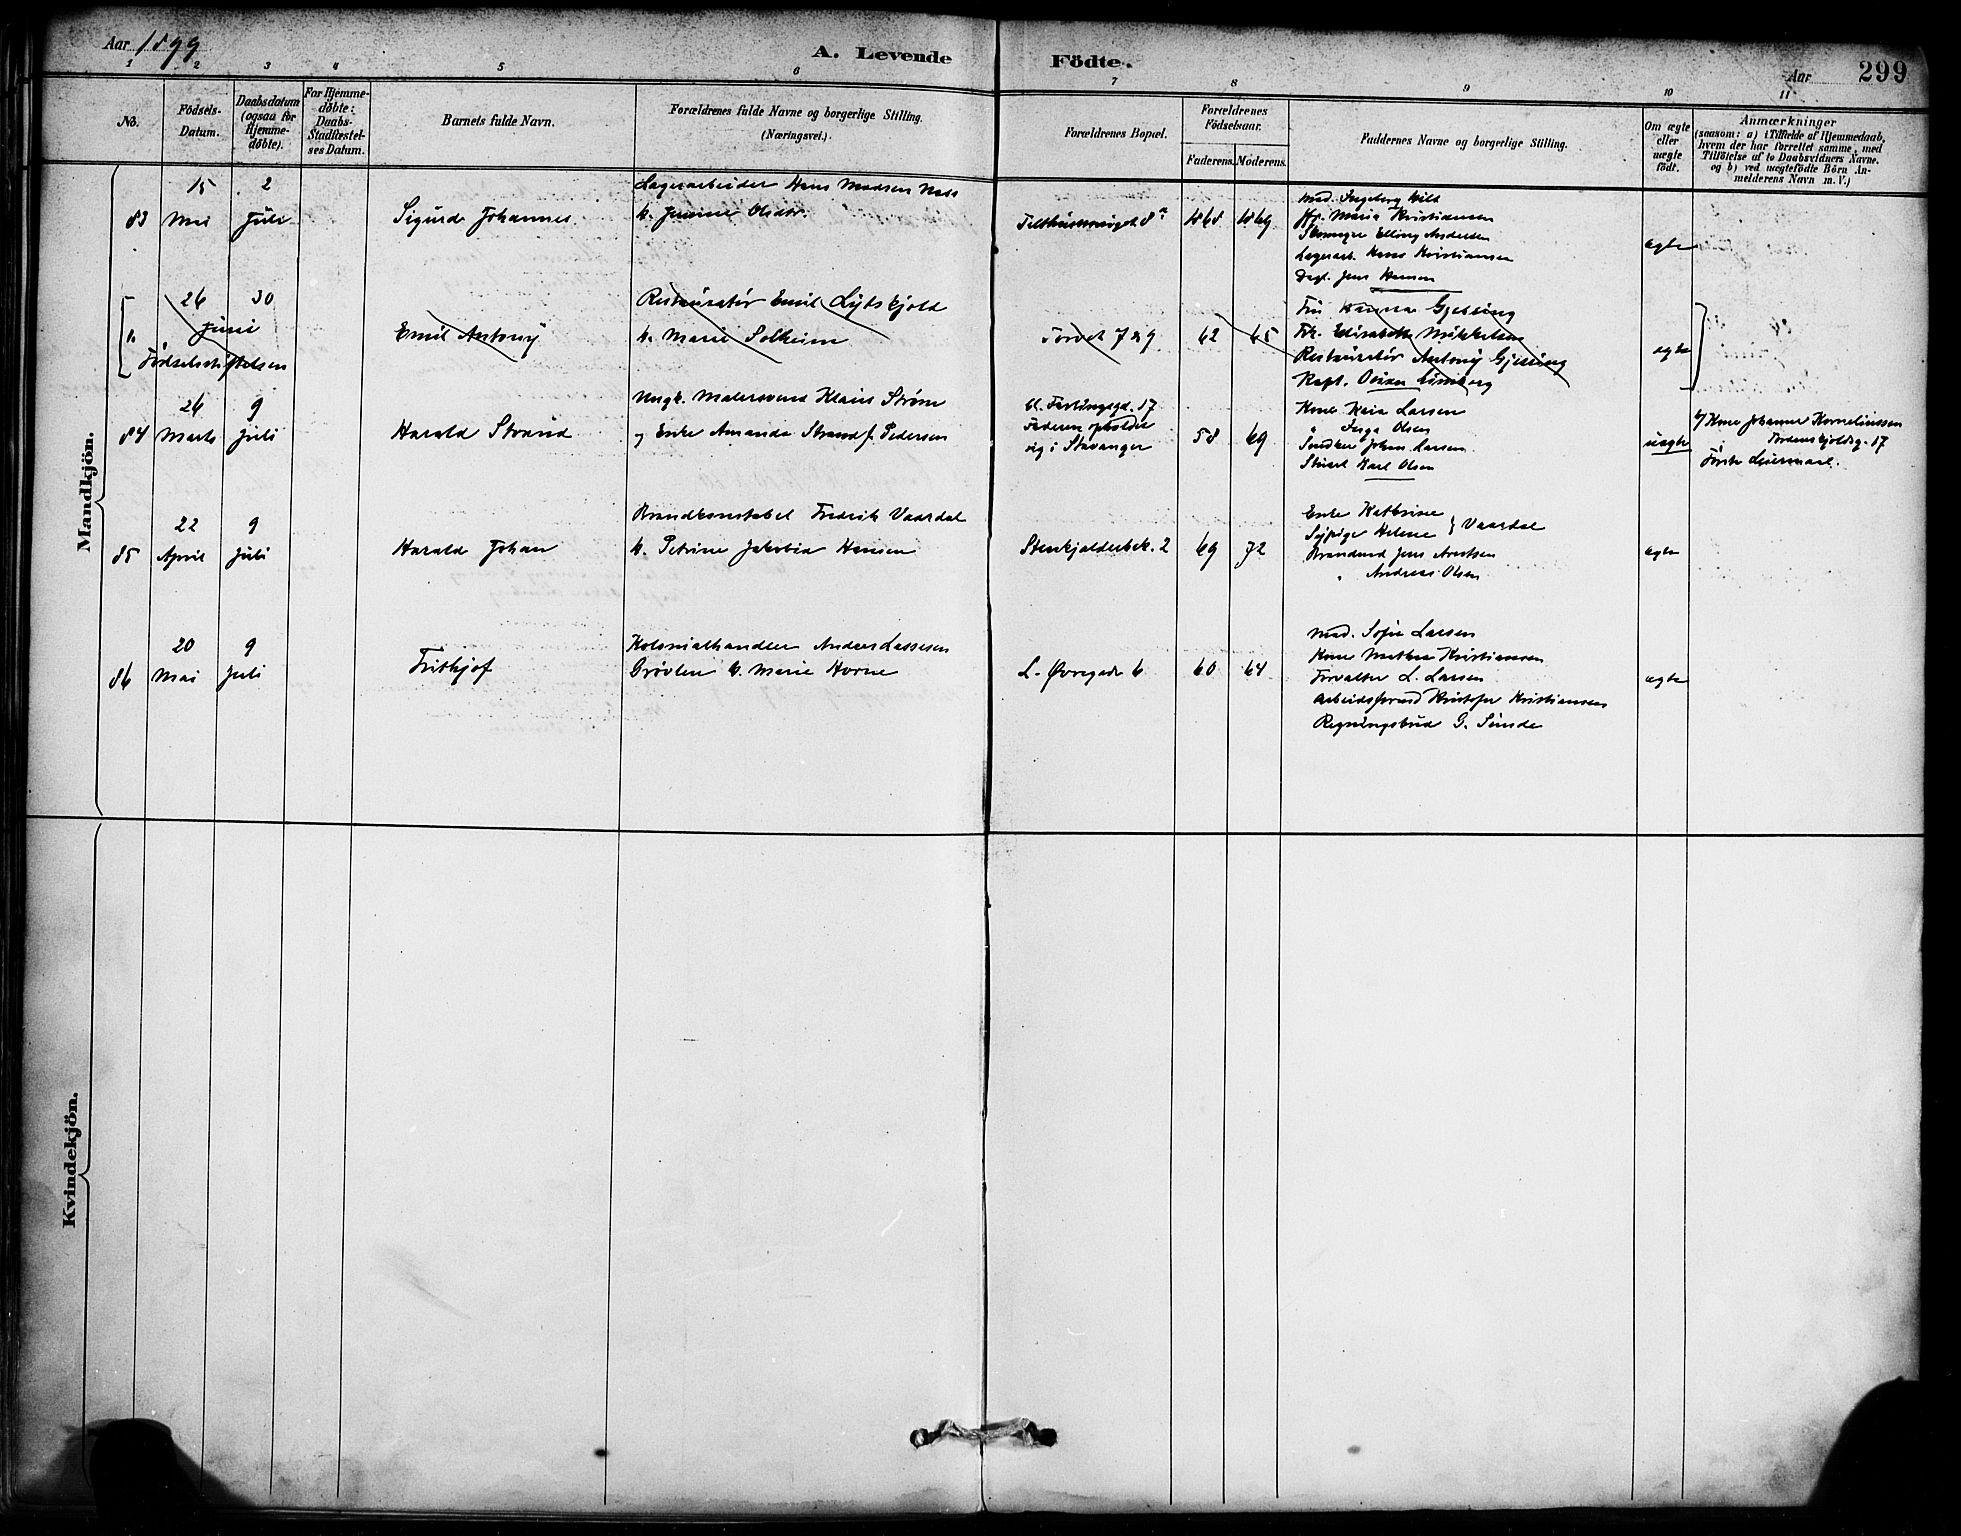 Aar 1899
A. Levende Födte.
Aar
299
1 2 3 4 5 6 7 8 9 10 11
No.
Födsels-
Datum.
Daabsdatum
(ogsaa for
Hjemme-
døbte).
For Hjemme-
døbte:
Daabs-
Stadfæstel-
ses Datum.
Barnets fulde Navn.
Forældrenes fulde Navne og borgerlige Stilling.
(Næringsvei.)
Forældrenes Bopæl.
Forældrenes
Födselsaar.
Faderens. Moderens.
Faddernes Navne og borgerlige Stilling.
Om ægte
eller
uægte
født.
Anmærkninger
(saasom: a) i Tilfælde af Hjemmedaab,
hvem der har forrettet samme, med
Tilföielse af to Daabsvidners Navne.
og b) ved uægtefödte Börn An-
melderens Navn m. V.)
Mandkjön.
83
15 Mai
2 Juli
Sigurd Johannes
Lagerarbeider Hans Madsen Næss
h. Jensine Olsdtr.
8a
1868 1869
Mad. Ingeborg Hild
Jfr. Maria Kristiansen
Elling Andersen
Lagerarb. Hans Kristiansen
Dagl. Jens Hansen
ægte
26 Juni
30
Fødselsstiftelsen
Emil Antonÿ
Restauratør Emil Lydskjold
h. Marie Solheim
Torvet 7 & 9
62 65
Fru Hanna Gjessing
Frk. Elisabeth Mikkelsen
Restauratør Antonÿ Gjessing
Kapt. Oskar
ægte
84
26 Marts
9 Juli
Harald Strand
Ungk. Malersvend Klaus Strøm
og Enke Amanda Strand f. Pedersen
17
Faderen opholder
sig i Stavanger
58 69
Kone Kaia Larsen
" Inga Olsen
Snedker Johan Larsen
Stuert Karl Olsen
uægte
Kone Johanne Korneliussen
Tordenskjoldsg. 17
Første Leiermaal.
85
22 April
9 Juli
Harald Johan
Brandkonstabel Fredrik Vaardal
h. Petrine Jakobia Hansen
Stenkjelderbak. 2
69 72
Enke Kathrine
Sypige Helene } Vaardal
Brandmd Jens Arntsen
" Andreas Olsen
ægte
86
20 Mai
9 Juli
Frithjof
Kolonialhandler Anders Lassesen
Grövlen h. Marie Horne
L. Øvregade 6
60 64
Mad. Sofie Larsen
Kone Marthea Kristiansen
Forvalter L. Larsen
Arbeidsformd Kristofer Kristiansen
Regningsbud G. Sunde
ægte
Kvindekjön.